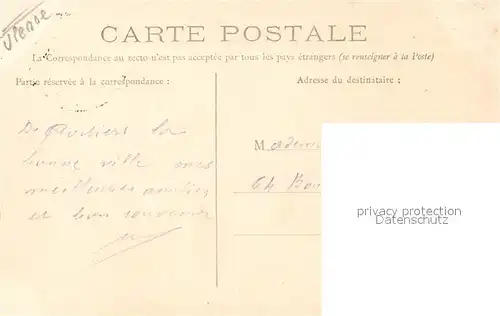 Vienne
CARTE POSTALE
La Correspondance au recto n'est pas acceptée par tous les pays étrangers (se renseigner à la Poste)
Partie réservée à la correspondance :
Adresse du destinataire ;
De Poitiers la
bonne ville mes
meilleures amitiés
et bon souvenir
Madem
Ch Bon
privacy protection
Datenschutz